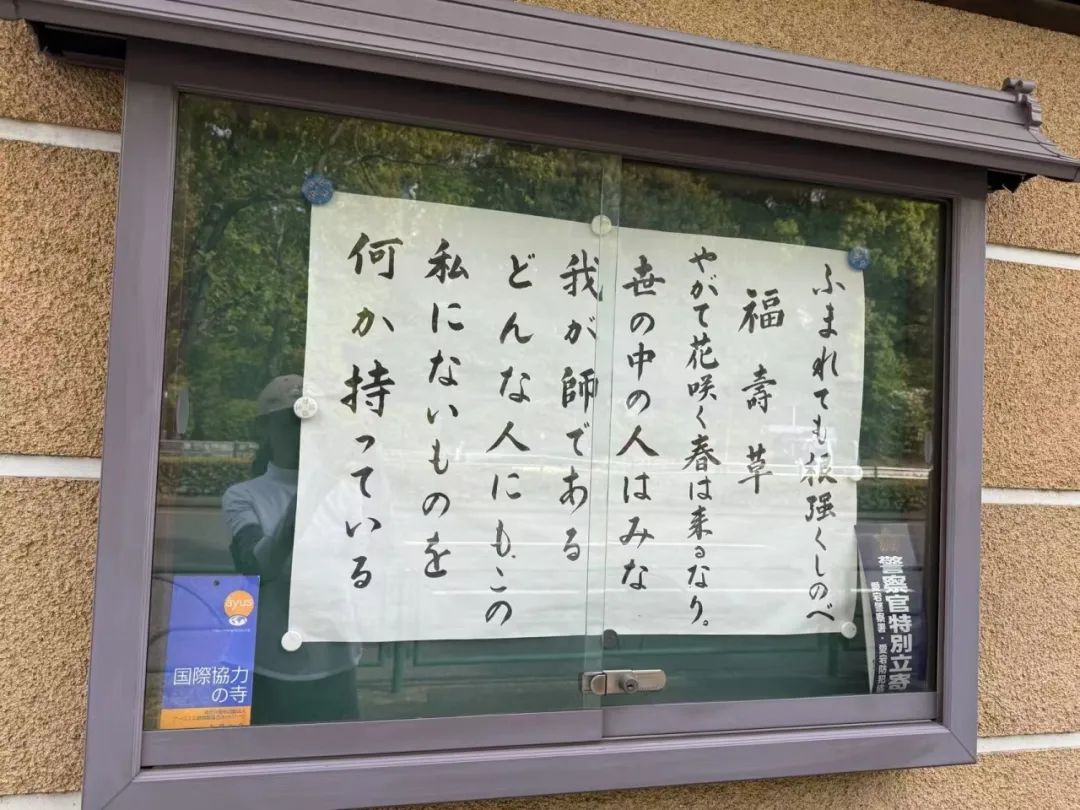 ふまれても根強くしのべ
福壽草
やがて花咲く春は来るなり。
世の中の人はみな
我が師である
どんな人にも、この
私にないものを
何か持っている
ayus
国際協力
の寺
警察官特別立寄
愛宕警察署・愛宕防犯協